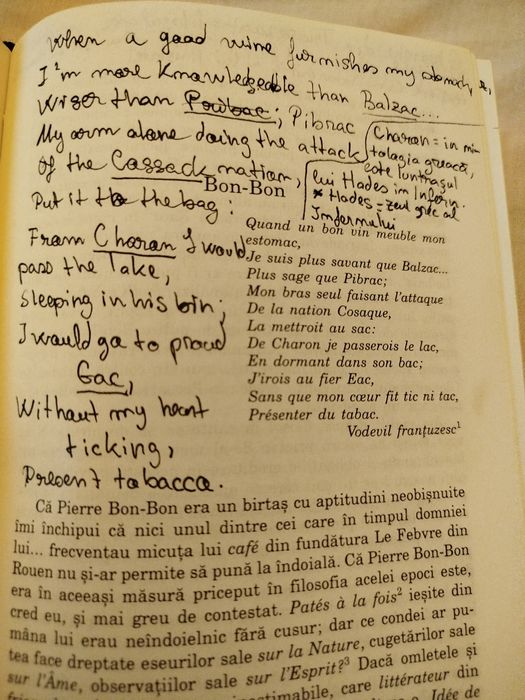 When a good wine furnishes my stomach,
I'm more knowledgeable than Balzac...
Wiser than Pibrac;
My arm alone doing the attack
Of the Cassack nation,
Put it to the bag:
From Charon I would
pass the lake,
Sleeping in his bin;
I would go to proud
Eac,
Without my heart
ticking,
Present tabacco.
Charon = în mi-
tologia greacă,
este luntrașul
lui Hades în Infern.
* Hades = zeul grec al
Infernului
Bon-Bon
Quand un bon vin meuble mon
estomac,
Je suis plus savant que Balzac...
Plus sage que Pibrac;
Mon bras seul faisant l'attaque
De la nation Cosaque,
La mettroit au sac:
De Charon je passerois le lac,
En dormant dans son bac;
J'irois au fier Eac,
Sans que mon cœur fit tic ni tac,
Présenter du tabac.
Vodevil franțuzesc¹
Că Pierre Bon-Bon era un birtaș cu aptitudini neobișnuite
îmi închipui că nici unul dintre cei care în timpul domniei
lui... frecventau micuța lui café din fundătura Le Febvre din
Rouen nu și-ar permite să pună la îndoială. Că Pierre Bon-Bon
era în aceeași măsură priceput în filosofia acelei epoci este,
cred eu, și mai greu de contestat. Patés à la fois² ieșite din
mâna lui erau neîndoielnic fără cusur; dar ce condei ar pu-
tea face dreptate eseurilor sale sur la Nature, cugetărilor sale
sur l'Âme, observațiilor sale sur l'Esprit?³ Dacă omletele și
inestimabile, care littérateur din
Idée de